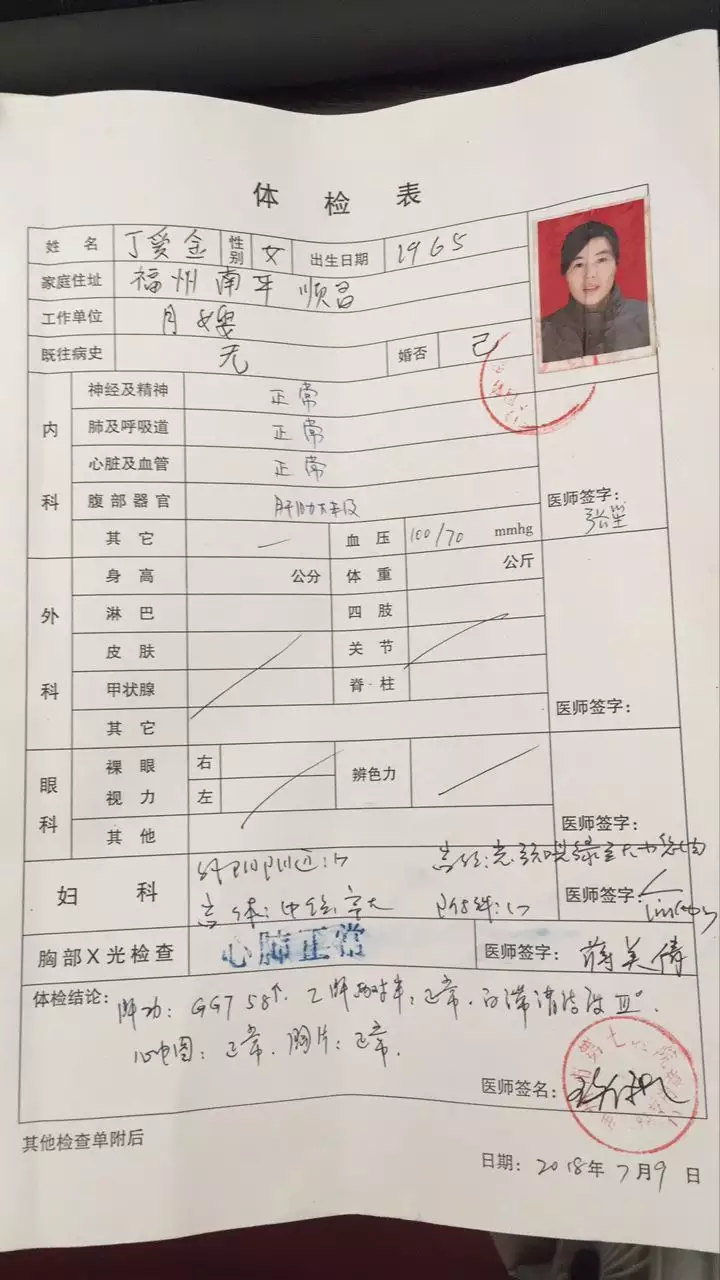 体 检 表
姓 名 丁爱金 性别 女 出生日期 1965
家庭住址 福州南平 顺昌
工作单位 月嫂
既往病史 无 婚否 已
内科
神经及精神 正常
肺及呼吸道 正常
心脏及血管 正常
腹部器官
医师签字:
其 它 — 血 压 100/70 mmhg
外科
身 高 公分 体 重 公斤
淋 巴 四 肢
皮 肤 关 节
甲状腺 脊 柱
其 它
医师签字:
眼科
裸眼视力 右 左 辨色力
其 他
医师签字:
妇 科
医师签字:
胸部X光检查 心肺正常 医师签字: 蒋美倩
体检结论: 肝功: GGT 58↑. 正常. 白带清洁度 III°.
心电图: 正常. 胸片: 正常.
医师签名:
其他检查单附后
日期: 2018年7月9日